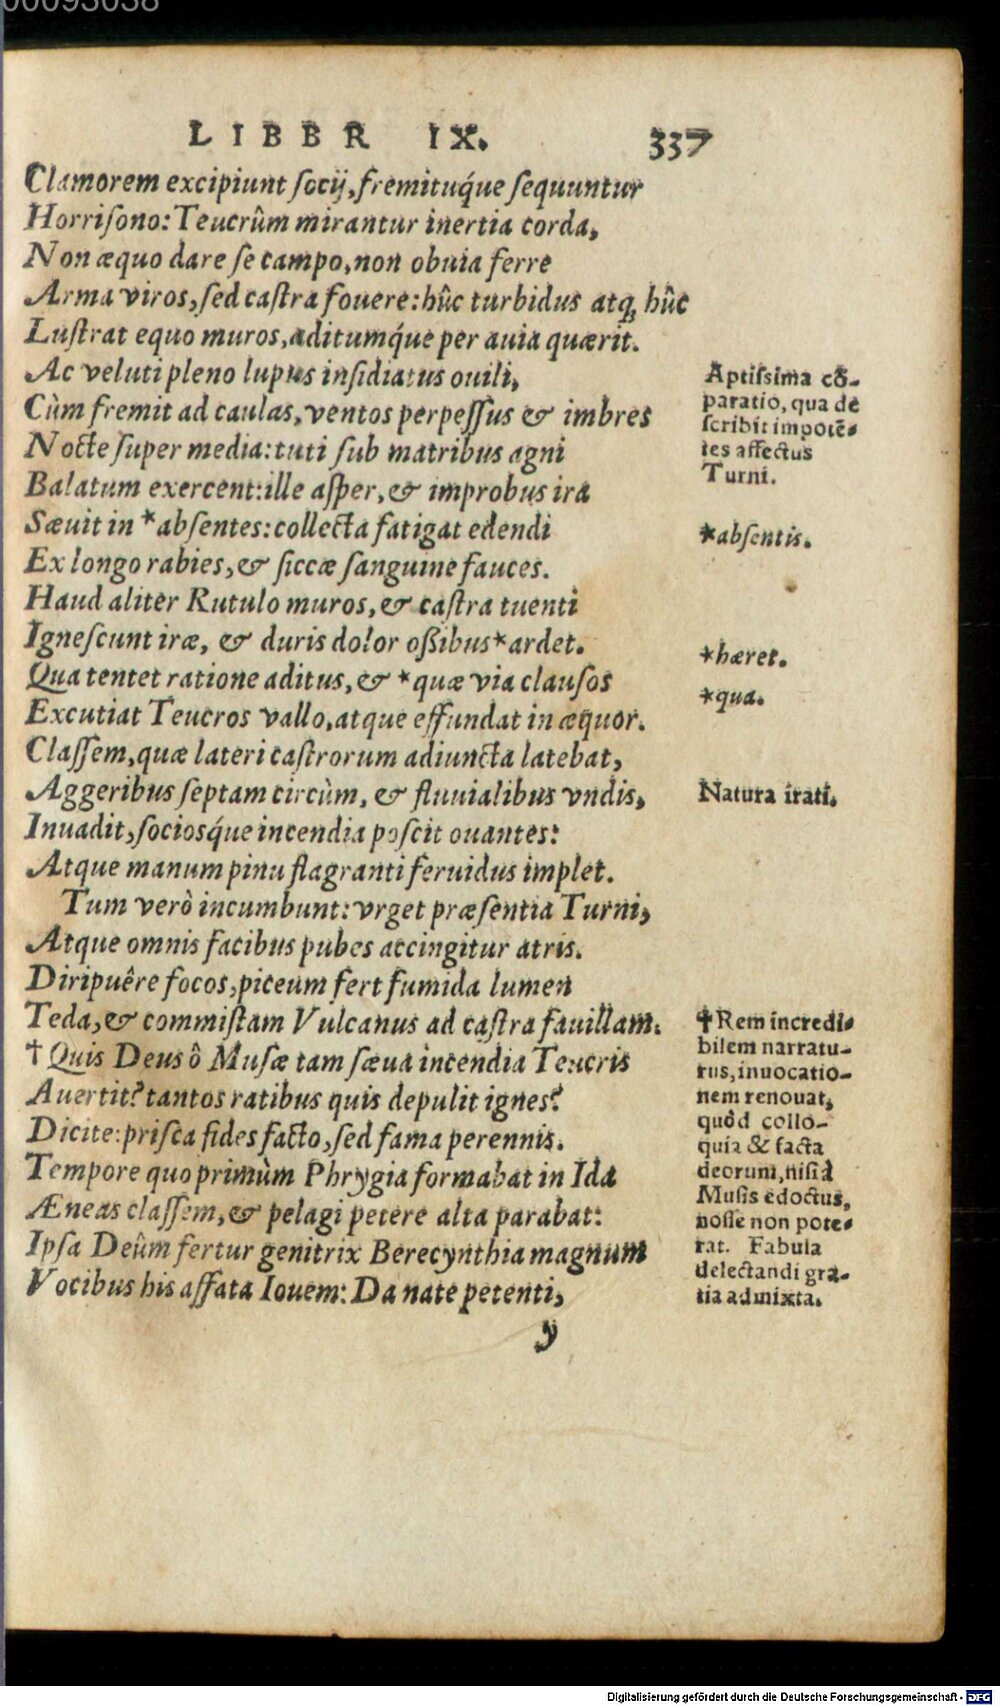 00093038
LIBER IX. 337
Clamorem excipiunt ſocij, fremituq́ue ſequuntur
Horriſono: Teucrûm mirantur inertia corda,
Non æquo dare ſe campo, non obuia ferre
Arma viros, ſed caſtra fouere: hûc turbidus atq; hûc
Luſtrat equo muros, aditumq́ue per auia quærit.
Ac veluti pleno lupus inſidiatus ouili,
Cùm fremit ad caulas, ventos perpeſſus & imbres
Nocte ſuper media: tuti ſub matribus agni
Balatum exercent: ille aſper, & improbus ira
Sæuit in *abſentes: collecta fatigat edendi
Ex longo rabies, & ſiccæ ſanguine fauces.
Haud aliter Rutulo muros, & caſtra tuenti
Igneſcunt iræ, & duris dolor oßibus *ardet.
Qua tentet ratione aditus, & *quæ via clauſos
Excutiat Teucros vallo, atque effundat in æquor.
Claſſem, quæ lateri caſtrorum adiuncta latebat,
Aggeribus ſeptam circùm, & fluuialibus vndis,
Inuadit, ſociosq́ue incendia poſcit ouantes:
Atque manum pinu flagranti feruidus implet.
Tum verò incumbunt: vrget præſentia Turni,
Atque omnis facibus pubes accingitur atris.
Diripuêre focos, piceum fert fumida lumen
Teda, & commiſtam Vulcanus ad caſtra fauillam.
† Quis Deus ô Muſæ tam ſæua incendia Teucris
Auertit? tantos ratibus quis depulit ignes?
Dicite: priſca fides facto, ſed fama perennis.
Tempore quo primùm Phrygia formabat in Ida
Æneas claſſem, & pelagi petere alta parabat:
Ipſa Deûm fertur genitrix Berecynthia magnum
Vocibus his affata Iouem: Da nate petenti,
y
Aptiſsima cõ-
paratio, qua de
ſcribit impotẽ-
tes affectus
Turni.
*abſentis.
*hæret.
*qua.
Natura irati.
† Rem incredi-
bilem narratu-
rus, inuocatio-
nem renouat,
quòd collo-
quia & facta
deorum, niſi à
Muſis edoctus,
noſſe non pote-
rat. Fabula
delectandi gra-
tia admixta.
Digitalisierung gefördert durch die Deutsche Forschungsgemeinschaft - DFG